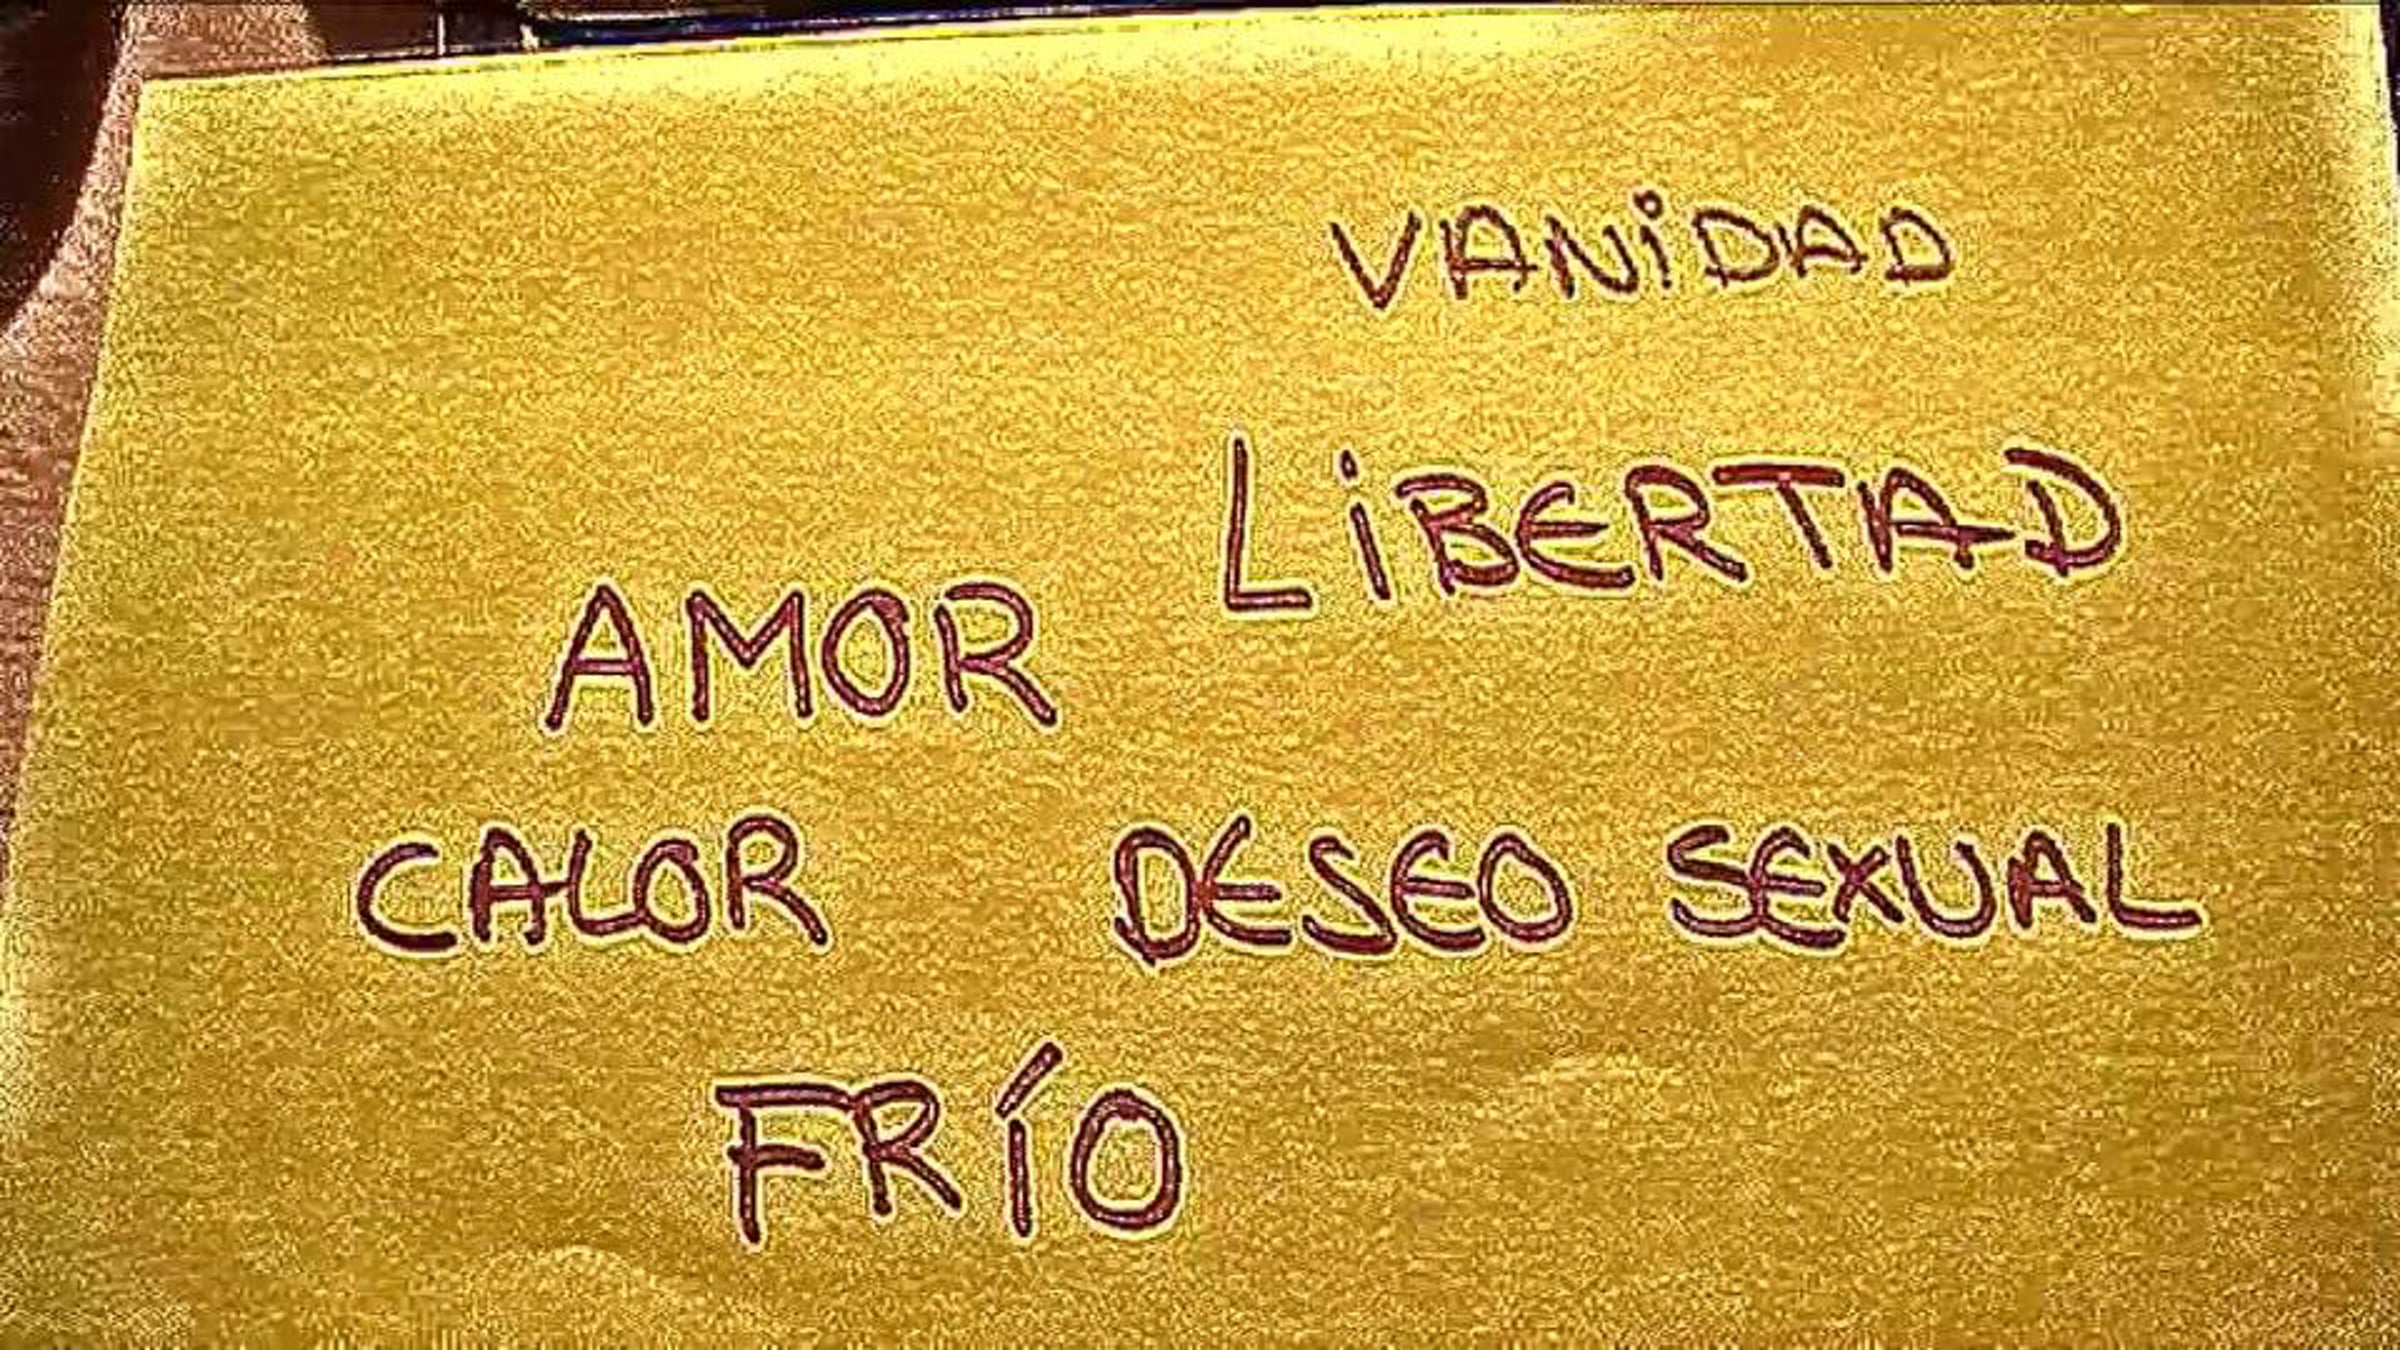 VANiDAD
LiBERTAD
AMOR
CALOR DESEO SEXUAL
FRÍO